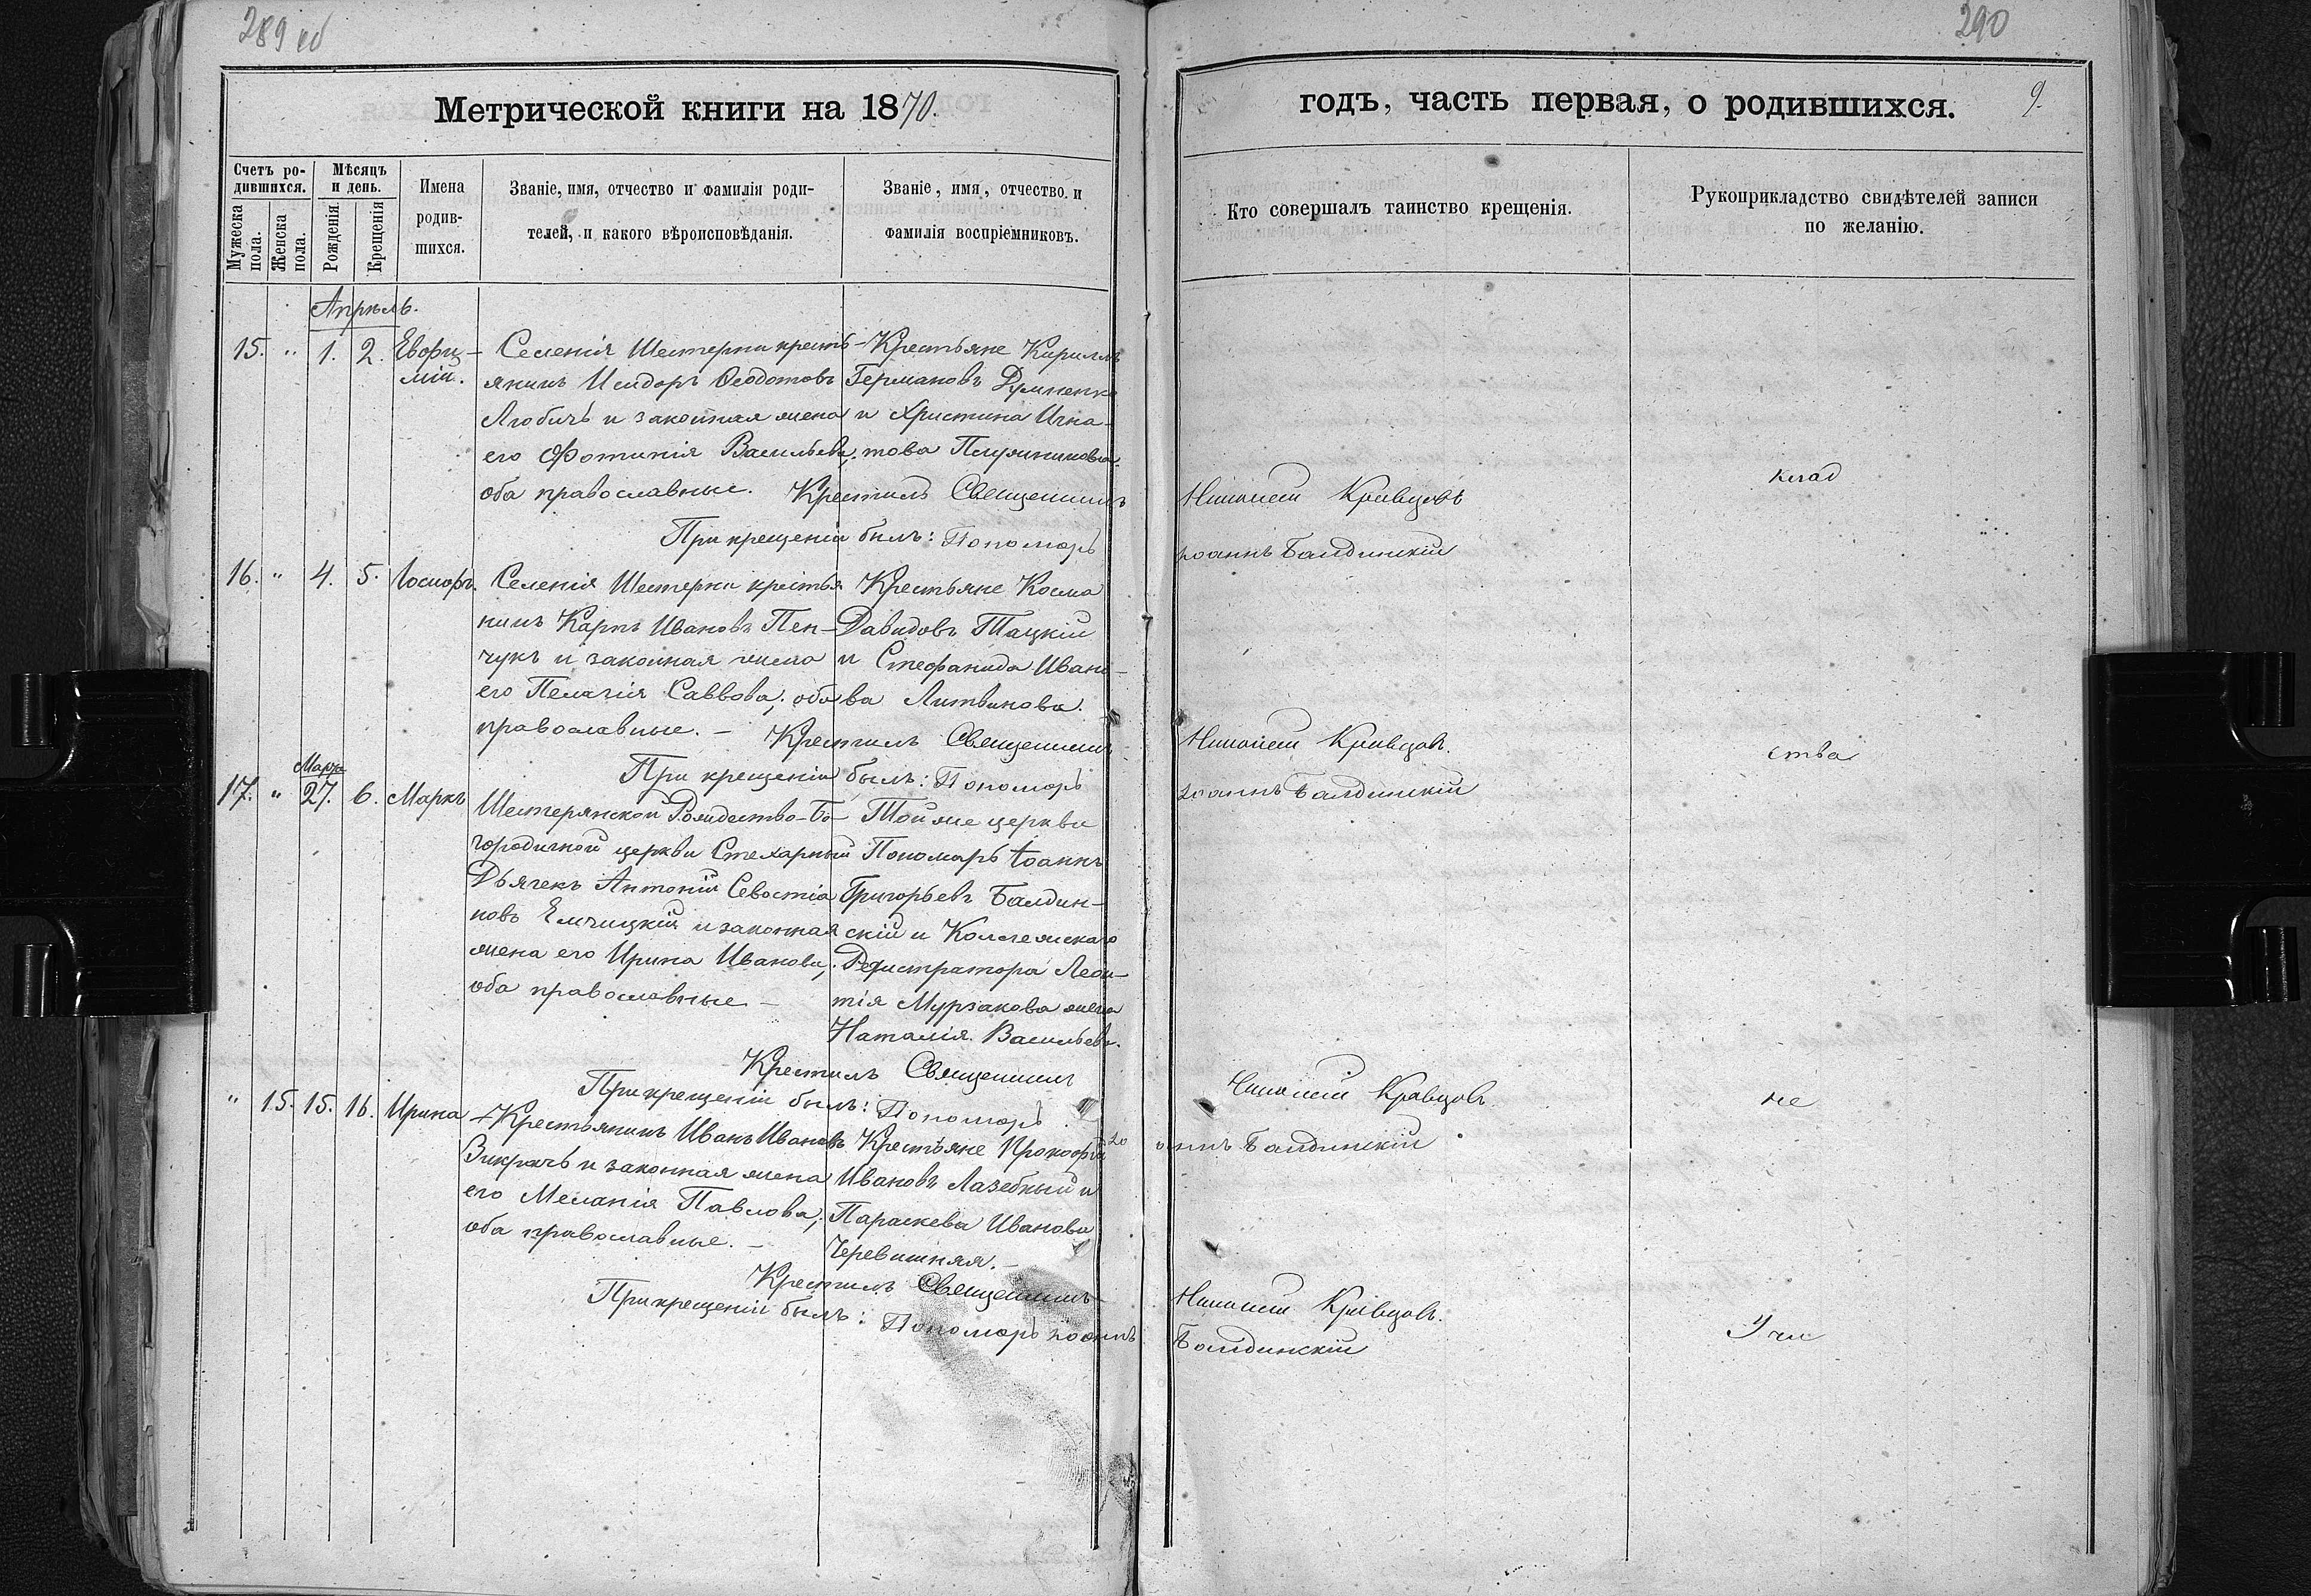 289 об
290
Метрической книги на 1870.
годъ, часть первая, о родившихся.
9.
Счетъ ро-
дившихся.
Мужеска пола.
Женска пола.
Мѣсяцъ
и день.
Рожденія.
Крещенія
Имена
родив-
шихся.
Званіе, имя, отчество и фамилія роди-
телей, и какого вѣроисповѣданія.
Званіе, имя, отчество и
фамилія воспріемниковъ.
Кто совершалъ таинство крещенія.
Рукоприкладство свидѣтелей записи
по желанію.
Апрѣль.
15. " 1. 2. Евфи-
мій.
Селенія Шестерни кресть-
янинъ Исидоръ Ѳеодотовъ
Любичъ и законная жена
его Фотинія Васильева;
оба православные.
Крестьяне Кириллъ
Германовъ Думненко
и Христина Игна-
това
Крестилъ Священникъ
Кривцовъ
При крещеніи былъ: Пономарь
Іоаннъ Балдинскій
клад
16. " 4. 5. Іосифъ.
Селенія Шестерни крестья
нинъ Карпъ Ивановъ Пен-
чукъ и законная жена
его Пелагія Саввова; оба
православные. –
Крестьяне Косма
Давидовъ Тацкій
и Стефанида Ивано-
ва Литвинова.
Крестилъ Священникъ
Кривцовъ.
При крещеніи былъ: Пономарь
Іоаннъ Балдинскій
ства
Марта
17. " 27. 6. Маркъ
Шестерянской Рождество-Бо-
городичной церкви Стехарный
Дьячекъ Антоній Севостіа
новъ Емчицкій и законная
жена его Ирина Иванова;
оба православные –
Той же церкви
Пономарь Іоаннъ
Григорьевъ Балдин-
скій и Коллежскаго
Регистратора Леон-
тія Мурзакова жена
Наталія Васильева.
Крестилъ Священникъ
Кривцовъ
При крещеніи былъ: Пономарь Іо
аннъ Балдинскій
не
" 15. 15. 16. Ирина
Крестьянинъ Иванъ Ивановъ
и законная жена
его Меланія Павлова;
оба православные. –
Крестьяне Прокофій
Ивановъ Лазебный и
Параскева Иванова
Черевишняя. –
Крестилъ Священникъ
Кривцовъ.
При крещеніи былъ: Пономарь Іоаннъ
Балдинскій